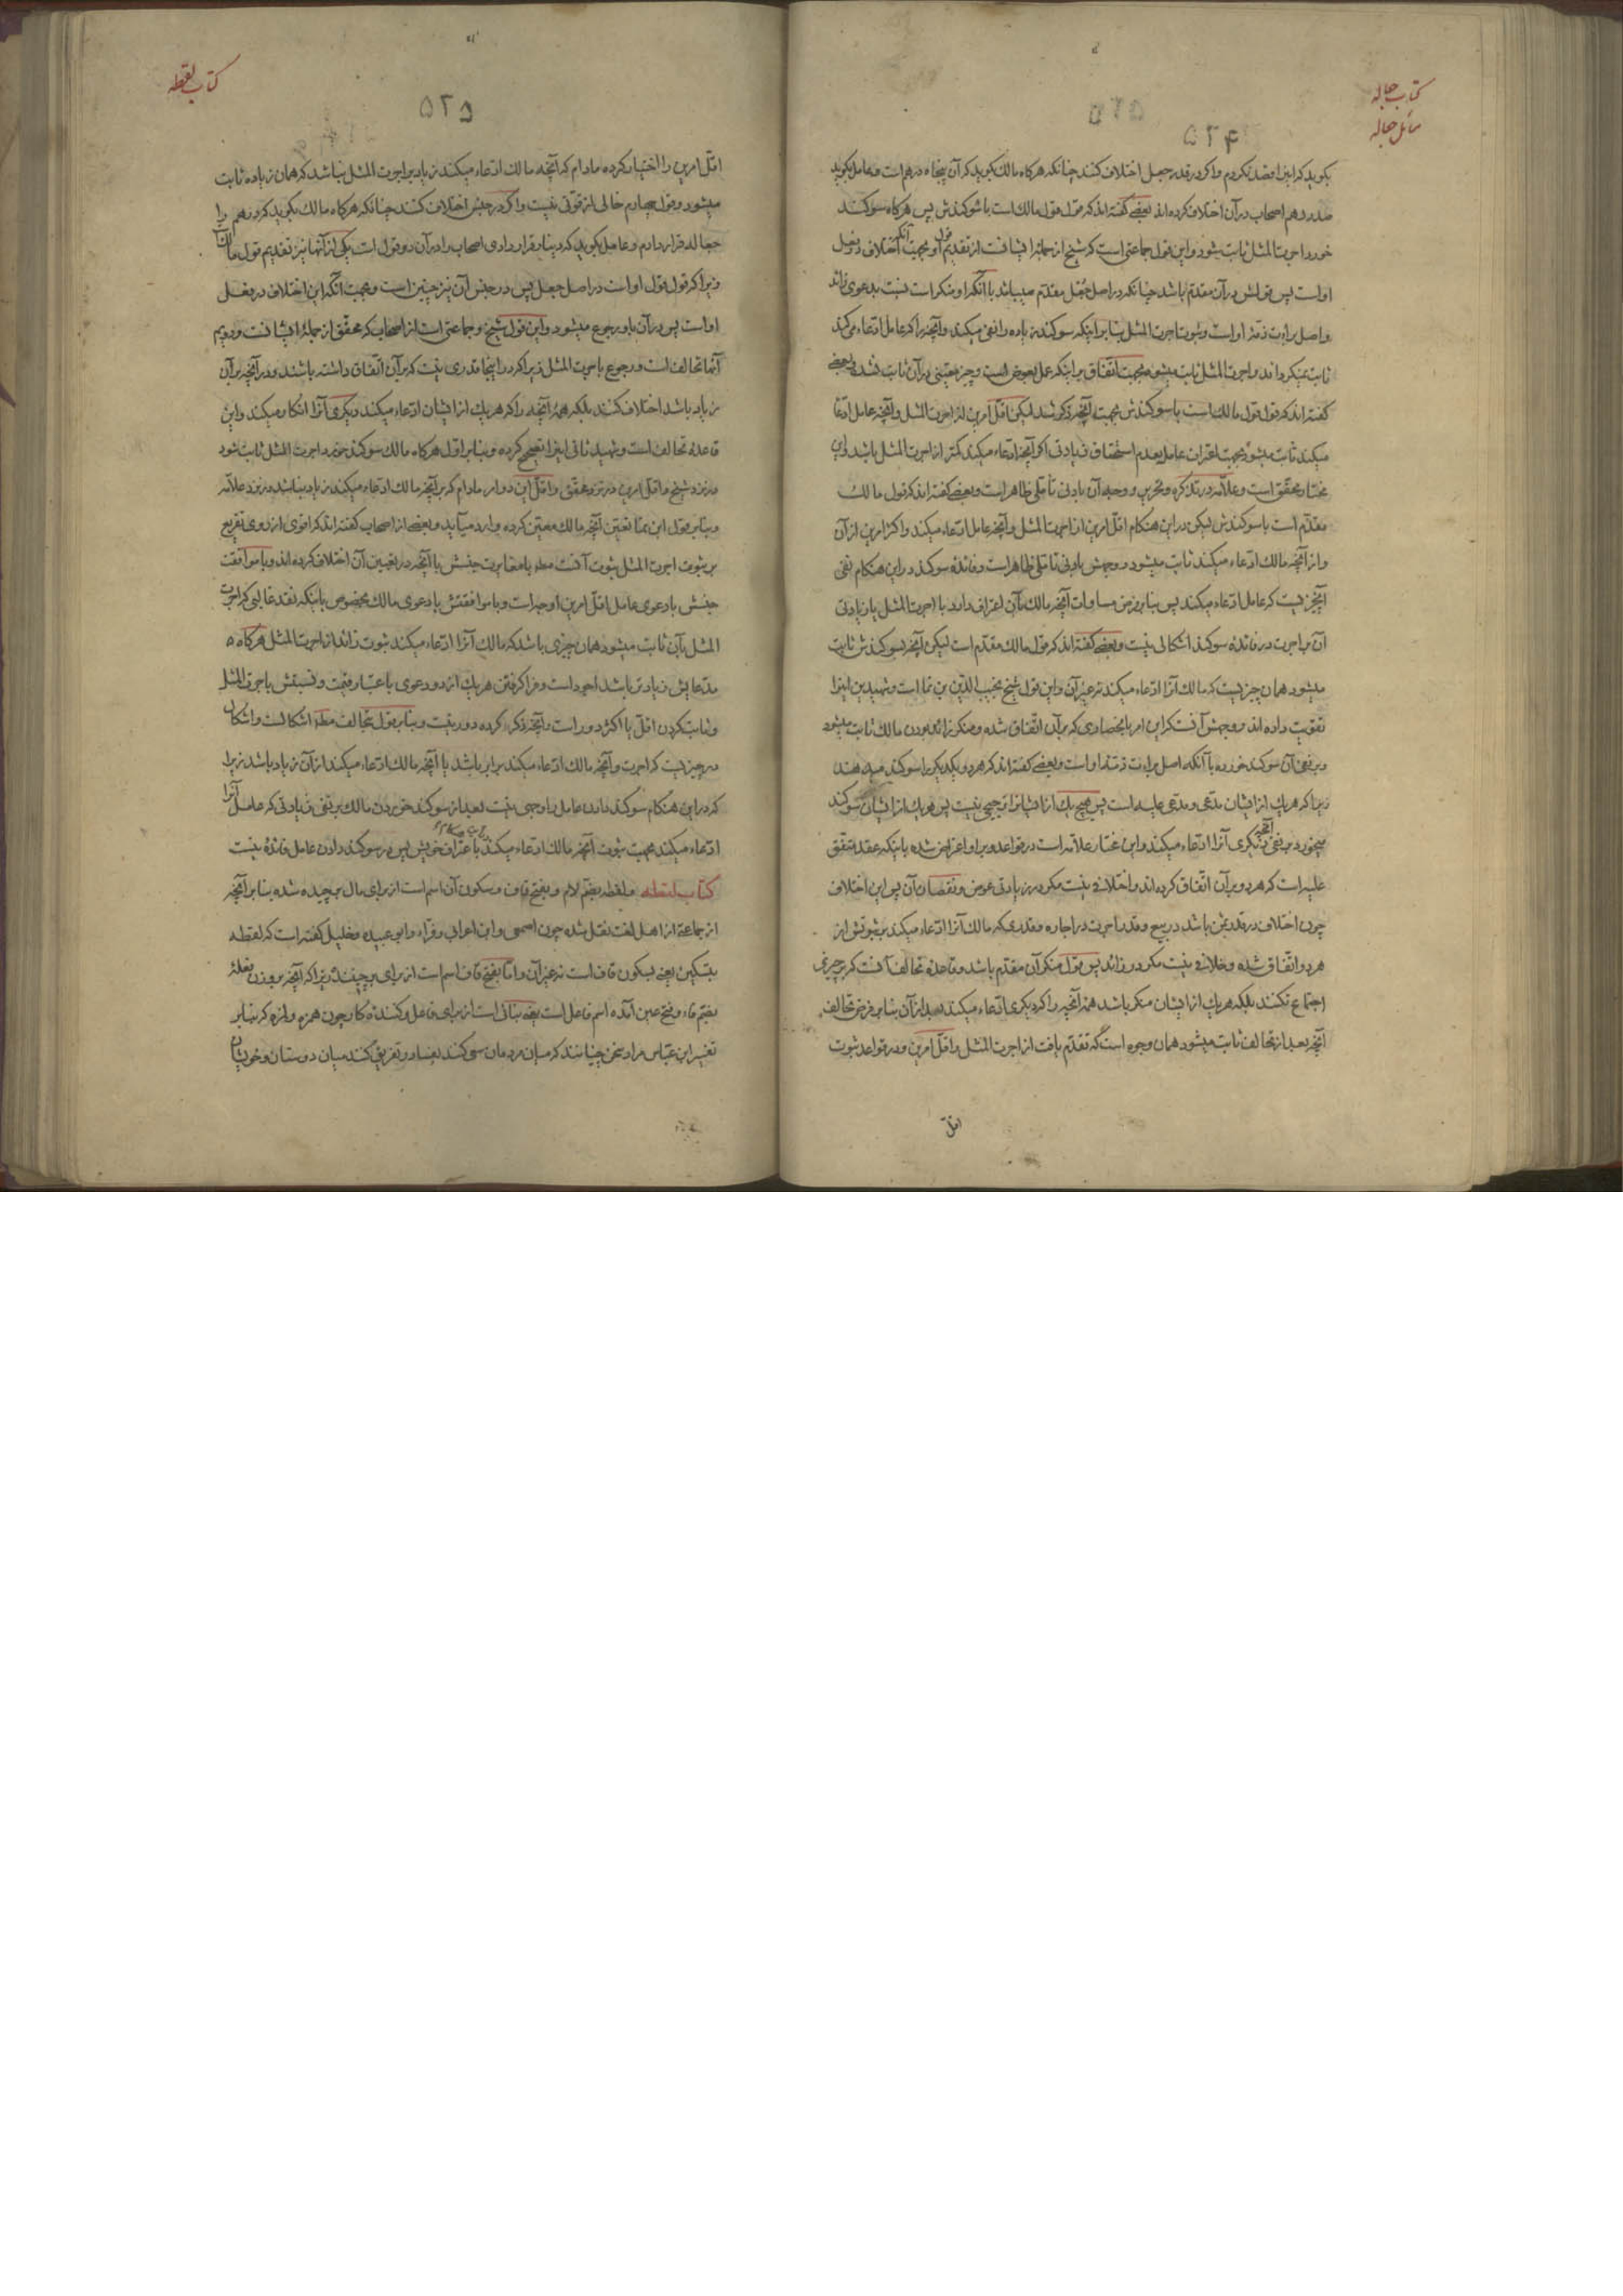 کتاب جعاله
مسائل جعاله
۵۲۴
بکوید که این را قصد نکردم و اکر در قدر جعل اختلاف کنند چنانکه هرکاه مالک بکوید که آن پنجاه درهم است و عامل بکوید
صد درهم اصحاب در آن اختلاف کرده اند بعضی کفته اند که قول قول مالک است با سوکندش پس هرکاه سوکند
خورد اجرت المثل ثابت شود و این قول جماعتی است که شیخ از جمله ایشانست از تقدیم قول او بجهت آنکه اختلاف در فعل
اواست پس قولش در آن مقدّم باشد چنانکه در اصل جعل مقدّم میباشد با آنکه او منکر است نسبت بدعوی زائد
و اصل براءت ذمّهٔ او است و ثبوت اجرت المثل بنا بر اینکه سوکند زیاده را نفی میکند و آنچه را که عامل ادّعاء می کند
ثابت نمیکرداند و اجرت المثل ثابت میشود بجهت اتّفاق بر اینکه عمل بعوض است و چیز معیّنی در آن ثابت نشد و بعضی
کفته اند که قول قول مالک است با سوکندش بجهت آنچه ذکر شد لیکن اقلّ امرین از اجرت المثل و آنچه عامل ادّعا
میکند ثابت میشود بجهت اعتراف عامل بعدم استحقاق زیادتی اکر آنچه ادّعاء میکند کمتر از اجرت المثل باشد و این
مختار محقّق است و علّامه در تذکره و تحریر و وجه آن بادنی تأمّلی ظاهر است و بعضی کفته اند که قول مالک
مقدّم است با سوکندش لیکن در این هنکام اقلّ امرین از اجرت المثل و آنچه عامل ادّعاء میکند و اکثر امرین از آن
و از آنچه مالک ادّعاء میکند ثابت میشود و وجهش بادنی تأمّلی ظاهر است و فائدهٔ سوکند در این هنکام نفی
آنچیز نیست که عامل ادّعاء میکند پس بنا بر فرض مساوات آنچه مالک بآن اعتراف دارد با اجرت المثل یا زیادتی
آن بر اجرت در فائدهٔ سوکند اشکالی نیست و بعضی کفته اند که قول مالک مقدّم است لیکن آنچه بسوکندش ثابت
میشود همان چیزیست که مالک آنرا ادّعاء میکند نه غیر آن و این قول شیخ نجیب الدّین بن نما است و شهیدین اینرا
تقویت داده اند و وجهش آنست که این امر بانحصاری که بر آن اتّفاق شده و منکر زائد بودن مالک ثابت میشود
و بر نفی آن سوکند خورده با آنکه اصل براءت ذمّهٔ او است و بعضی کفته اند که هر دو یکدیکر را سوکند میدهند
زیرا که هریک از ایشان مدّعی و مدّعی علیه است پس هیچ یک از ایشانرا ترجیحی نیست پس هریک از ایشان سوکند
میخورد بر نفی آنچه دیکری آنرا ادّعاء میکند و این مختار علّامه است در قواعد و بر او اعتراض شده باینکه عقد متّفق
علیه است که هر دو بر آن اتّفاق کرده اند و اختلافی نیست مکر در زیادتی عوض و نقصان آن پس این اختلاف
چون اختلاف در قدر ثمن باشد در بیع و قدر اجرت در اجاره و قدری که مالک آنرا ادّعاء میکند بر ثبوتش از
هر دو اتّفاق شده و خلافی نیست مکر در زائد پس قول منکر آن مقدّم باشد و قاعدهٔ تحالف آنست که بر چیزی
اجتماع نکنند بلکه هریک از ایشان منکر باشد همهٔ آنچه را که دیکری ادّعاء میکند بعد از آن بنا بر فرض تحالف
آنچه بعد از تحالف ثابت میشود همان وجوه است که تقدّم یافت از اجرت المثل و اقلّ امرین و در قواعد ثبوت
اقلّ
کتاب لقطه
۵۲۵
اقلّ امرین را اختیار کرده مادام که آنچه مالک ادّعاء میکند زیاد بر اجرت المثل نباشد که همان زیاده ثابت
میشود و قول چهارم خالی از قوّتی نیست و اکر در جنس اختلاف کنند چنانکه هرکاه مالک بکوید که درهم را
جعاله قرار دادم و عامل بکوید که دینار قرار دادی اصحاب را در آن دو قول است یکی از آنها نیز تقدیم قول مالک
زیرا که قول قول او است در اصل جعل پس در جنس آن نیز چنین است و بجهت آنکه این اختلاف در فعل
اواست پس در آن باو رجوع میشود و این قول شیخ و جماعتی است از اصحاب که محقّق از جملهٔ ایشانست و دویم
آنها تحالف است و رجوع باجرت المثل زیرا که در اینجا قدری نیست که بر آن اتّفاق داشته باشند و در آنچه بر آن
زیاد باشد اختلاف کنند بلکه همهٔ آنچه را که هریک از ایشان ادّعاء میکند دیکری آنرا انکار میکند و این
قاعدهٔ تحالف است و شهید ثانی اینرا تصحیح کرده و بنا بر اوّل هرکاه مالک سوکند خورد اجرت المثل ثابت شود
در نزد شیخ و اقلّ امرین در نزد محقّق و اقلّ این دو امر مادام که بر آنچه مالک ادّعاء میکند زیاد نباشد در نزد علّامه
و بنا بر قول ابن نما تعیین آنچه مالک معیّن کرده وارد میآید و بعضی از اصحاب کفته اند که اقوی از روی تفریع
بر ثبوت اجرت المثل ثبوت آنست مطه با مغایرت جنسش با آنچه در تعیین آن اختلاف کرده اند و با موافقت
جنسش با دعوی عامل اقلّ امرین اوجه است و با موافقتش با دعوی مالک بخصوص باینکه نقد غالبی که اجرت
المثل بآن ثابت میشود همان چیزی باشد که مالک آنرا ادّعاء میکند ثبوت زائد از اجرت المثل هرکاه
مدّعایش زیادتر باشد اجود است و فرا کرفتن هریک از دو دعوی باعتبار قیمت و نسبتش باجرت المثل
و ثابت کردن اقلّ یا اکثر دور است و آنچه ذکر کرده دور نیست و بنا بر قول بتحالف مطه اشکالست و اشکال
در چیزیست که اجرت و آنچه مالک ادّعاء میکند برابر باشد یا آنچه مالک ادّعاء میکند از آن زیاد باشد زیرا
که در این هنکام سوکند دادن عامل را وجهی نیست بعد از سوکند خوردن مالک بر نفی زیادتی که عامل آنرا
ادّعاء میکند بجهت ثبوت آنچه مالک ادّعاء میکند باعتراف خویش پس در سوکند دادن عامل فائدهٔ نیست
کتاب لقطه و لقطه بضمّ لام و بفتح قاف و سکون آن اسم است از برای مال برچیده شده بنا بر آنچه
از جماعتی از اهل لغت نقل شده چون اصمعی و ابن اعرابی و فرّاء و ابو عبیده و خلیل کفته است که لقطه
بتسکین یعنی بسکون قاف است نه غیر آن و امّا بفتح قاف اسم است از برای برچیننده زیرا که آنچه بر وزن فعلهٔ
بضمّ فاء و فتح عین آمده اسم فاعل است یعنی بنائی است از برای فاعل و کنندهٔ کار چون همزه و لمزه که بنا بر
تفسیر ابن عبّاس مراد سخن چینانند که میان مردمان سعی کنند بفساد و تفریق کنند میان دوستان و خویشان